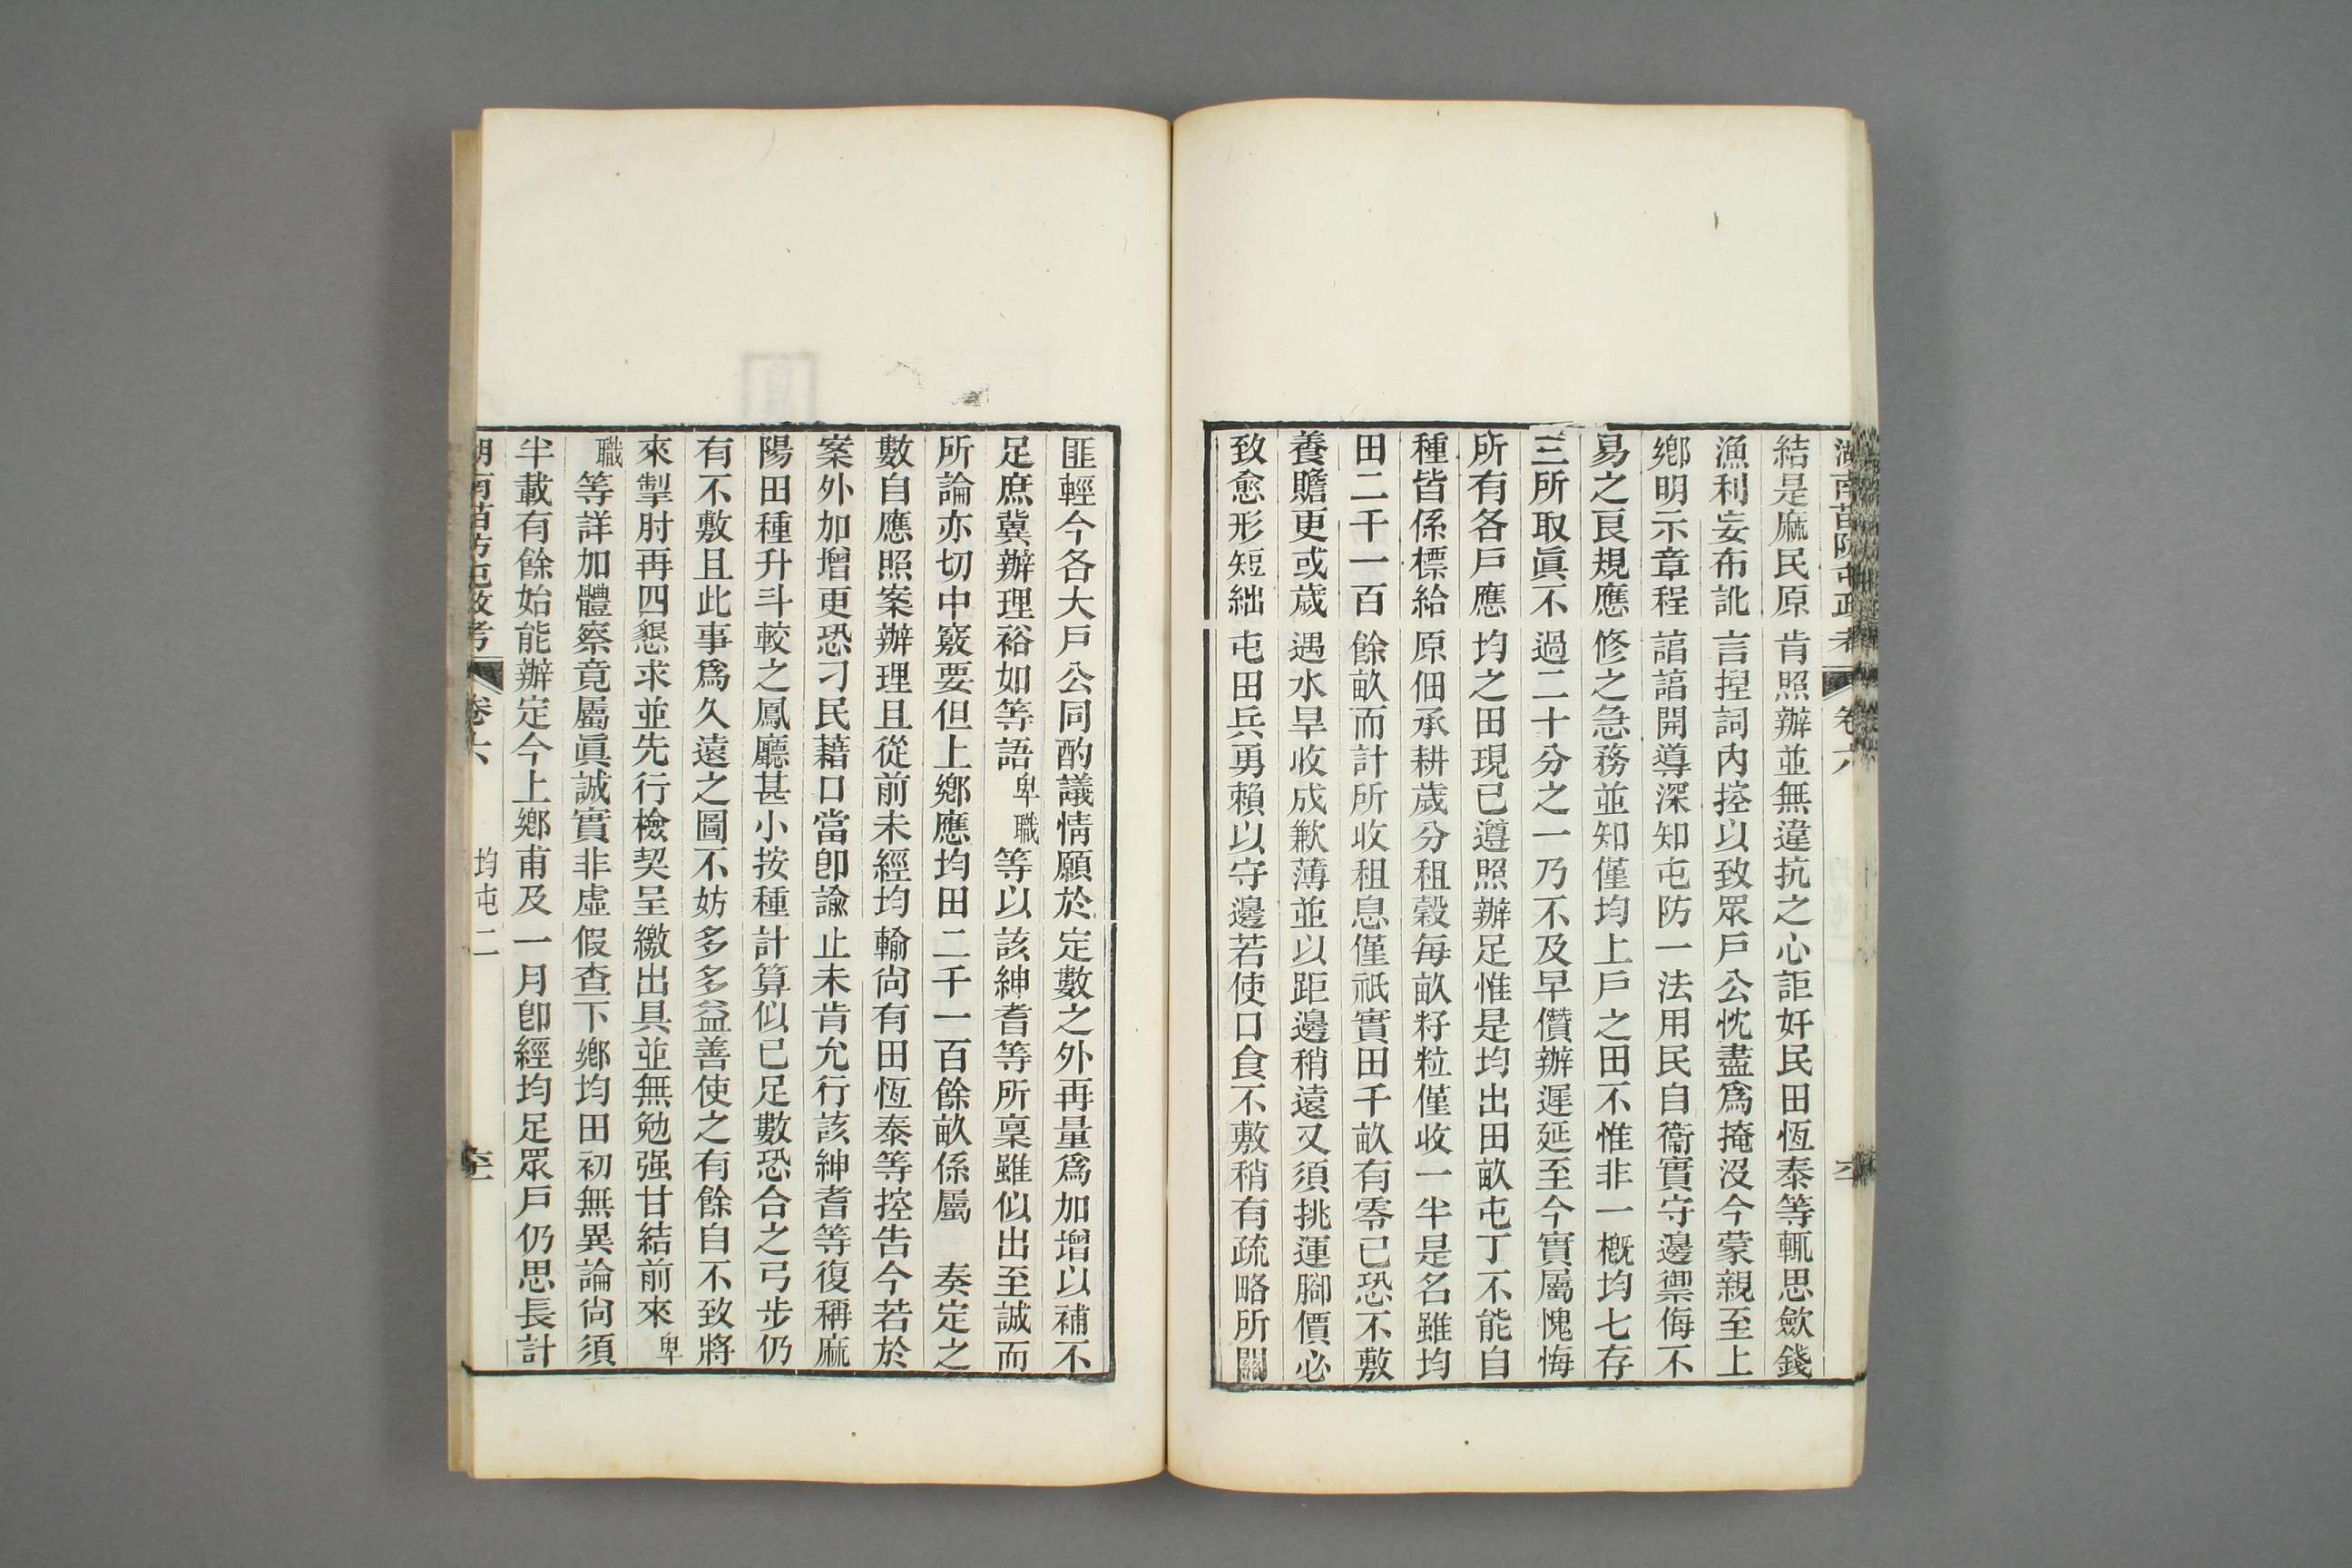 湖南苗防屯政考 卷六
結是麻民原肯照辦並無違抗之心詎奸民田恆泰等輒思歛錢
漁利妄布訛言揑詞內控以致眾戶公忱盡爲掩沒今蒙親至上
鄉明示章程諳諳開導深知屯防一法用民自衞實守邊禦侮不
易之良規應修之急務並知僅均上戶之田不惟非一槪均七存
三所取眞不過二十分之一乃不及早儹辦遲延至今實屬愧悔
所有各戶應均之田現已遵照辦足惟是均出田畝屯丁不能自
種皆係標給原佃承耕歲分租穀每畝籽粒僅收一半是名雖均
田二千一百餘畝而計所收租息僅祇實田千畝有零已恐不敷
養贍更或歲遇水旱收成歉薄並以距邊稍遠又須挑運腳價必
致愈形短絀屯田兵勇賴以守邊若使口食不敷稍有疏略所關
匪輕今各大戶公同酌議情願於定數之外再量爲加增以補不
足庶冀辦理裕如等語卑職等以該紳耆等所稟雖似出至誠而
所論亦切中竅要但上鄉應均田二千一百餘畝係屬 奏定之
數自應照案辦理且從前未經均輸尙有田恆泰等控告今若於
案外加增更恐刁民藉口當卽諭止未肯允行該紳耆等復稱麻
陽田種升斗較之鳳廳甚小按種計算似已足數恐合之弓步仍
有不敷且此事爲久遠之圖不妨多多益善使之有餘自不致將
來掣肘再四懇求並先行檢契呈繳出具並無勉强甘結前來卑
職等詳加體察竟屬眞誠實非虛假查下鄉均田初無異論尙須
半載有餘始能辦定今上鄉甫及一月卽經均足眾戶仍思長計
湖南苗防屯政考 卷六 均屯二